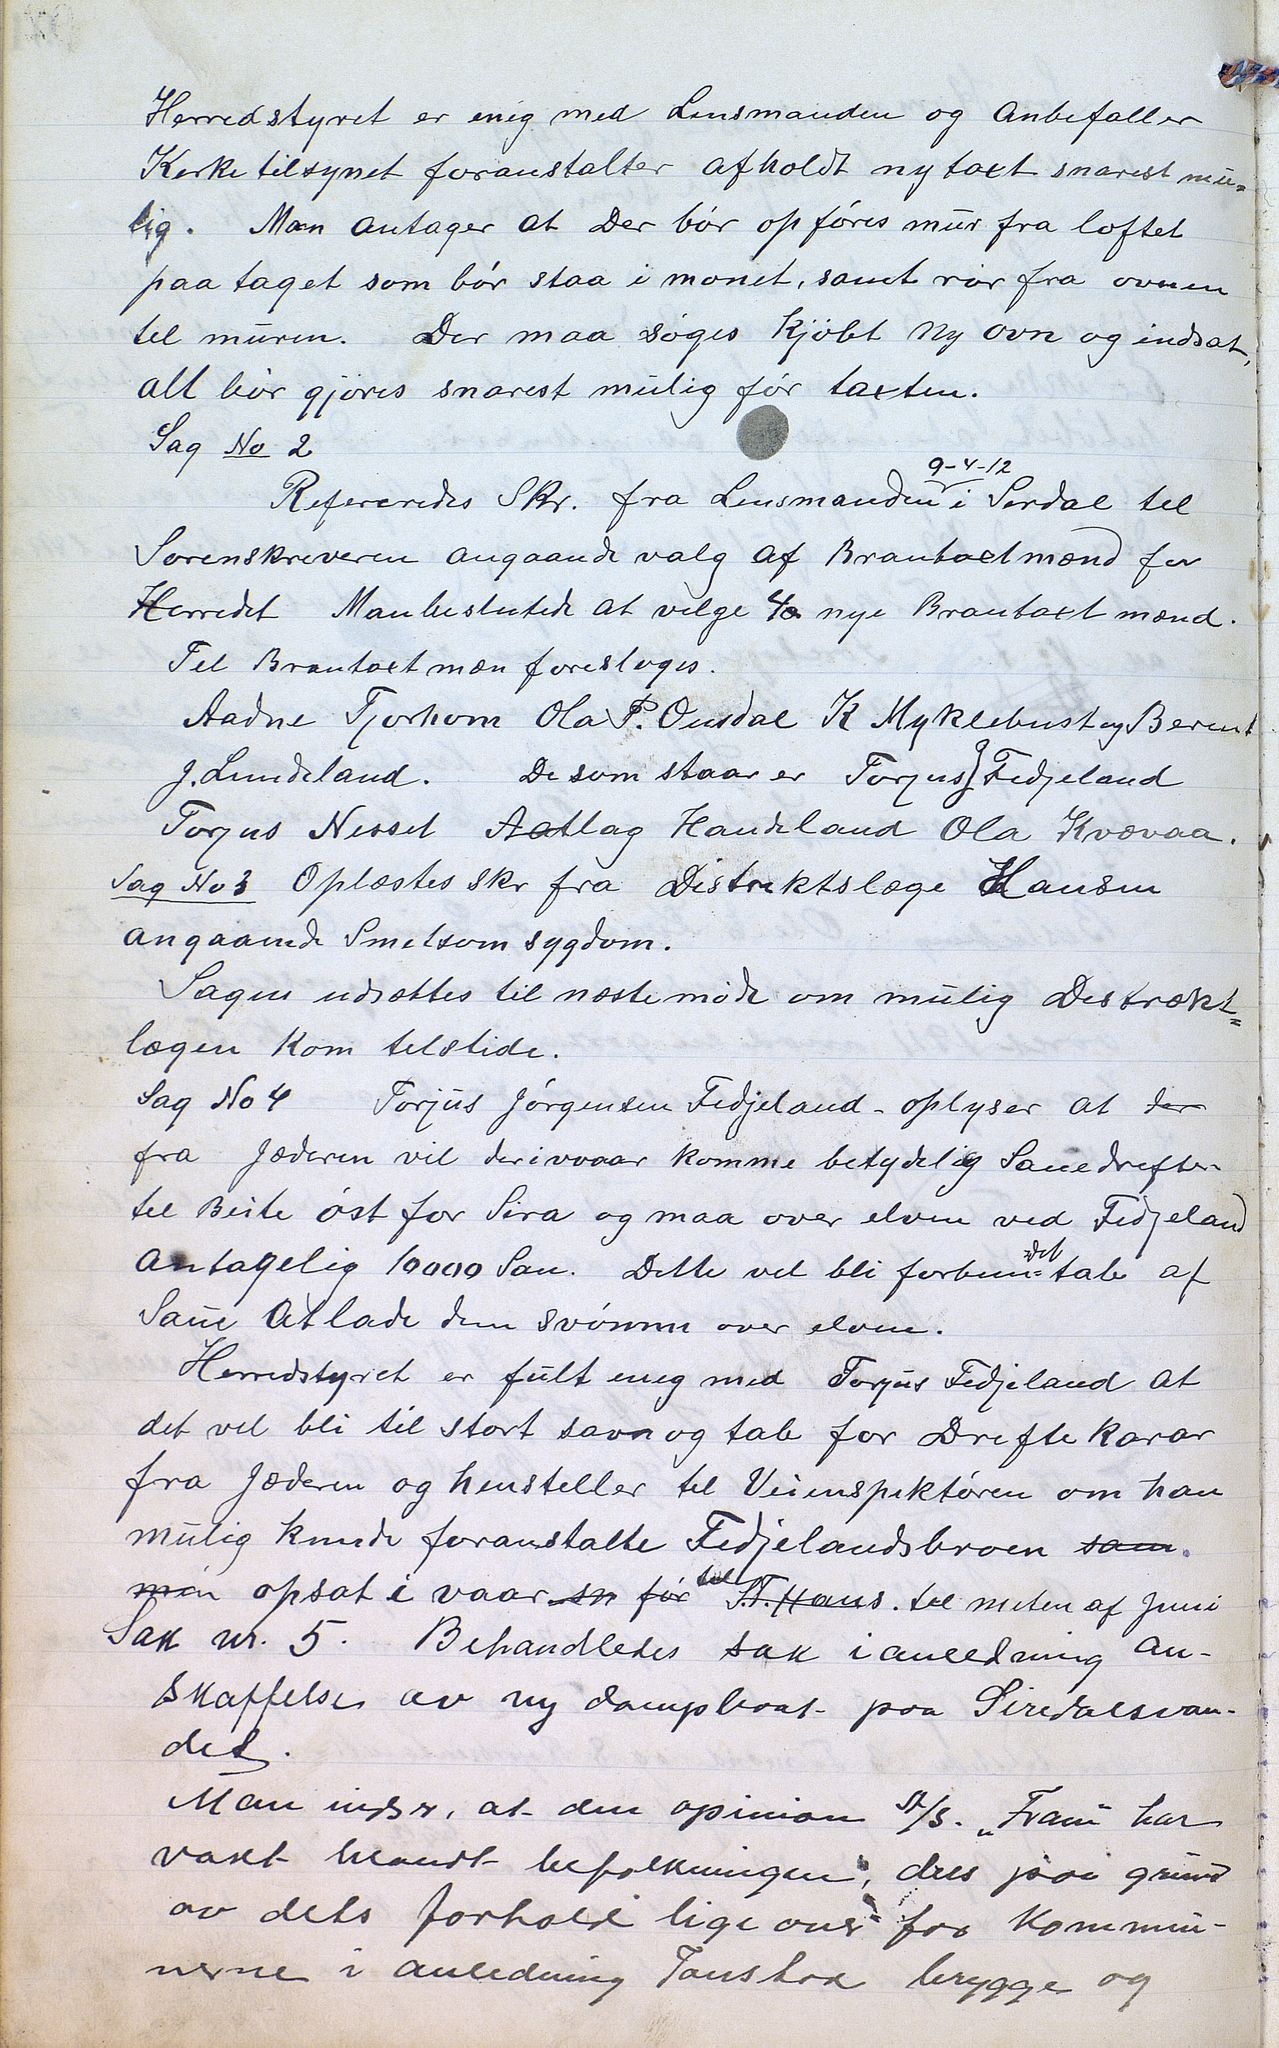 Herredstyret er enig med Lensmanden og Anbefaller
Kerketilsynet foranstalter afholdt ny taxt snarest mu-
lig. Man antager at Der bør opføres mur fra loftet
paa taget som bør staa i mønet, samt rør fra ovnen
tel muren. Der maa søges Kjøbt Ny Ovn og indsat,
alt bør gjøres snarest mulig før taxten.
Sag No 2
9-4-12
Refereredes Skr. fra Lensmanden i Serdal tel
Sorenskreveren angaande valg af Brantaxtmænd for
Herredet Man besluted at velge 4 nye Brantaxt mænd.
Tel Brantaxtmæn foresloges.
Aadne Tjorhom Ola P. Ousdal K Myklebust og Berent
J. Lundeland. De som staar er Torjus J Fedjeland
Torjus Nesset Aatlag Handeland Ola Kvævaa.
Sag No 3 Oplæstes skr fra Distrektslæge Hansen
angaaende Smetsom sygdom.
Sagen udsættes til næste møde om mulig Destrækt=
lægen Kom telstede.
Sag No 4 Torjus Jørgensen Fedjeland - oplyser at der
fra Jæderen vil der i vaar komme betydelig Sauedrefter
tel Beite øst for Sira og maa over elven ved Fedjeland
Antagelig 10000 Sau. Dette vel bli forbun-
det tab af
Saue At lade dem svømme over elven.
Herredstyret er fult eneg med Torjus Fedjeland At
det vel bli til stort savn og tab for Drefte Karar
fra Jæderen og henstelller tel Veienspektøren om han
mulig kunde foranstalte Fedjelandsbroen sam.
men opsat i vaar sn før tel St. Hans. tel meten af Juni
Sak nr. 5. Behandledes sak i anledning an-
skaffelse av ny dampbaat paa Siredalsvan-
det.
Man indser, at den opinion A/S. "Fram" har
vakt blandt befolkningen, dels paa grund
av dets forhold lige over for Kommu-
nerne i anledning Tonstad brygge og